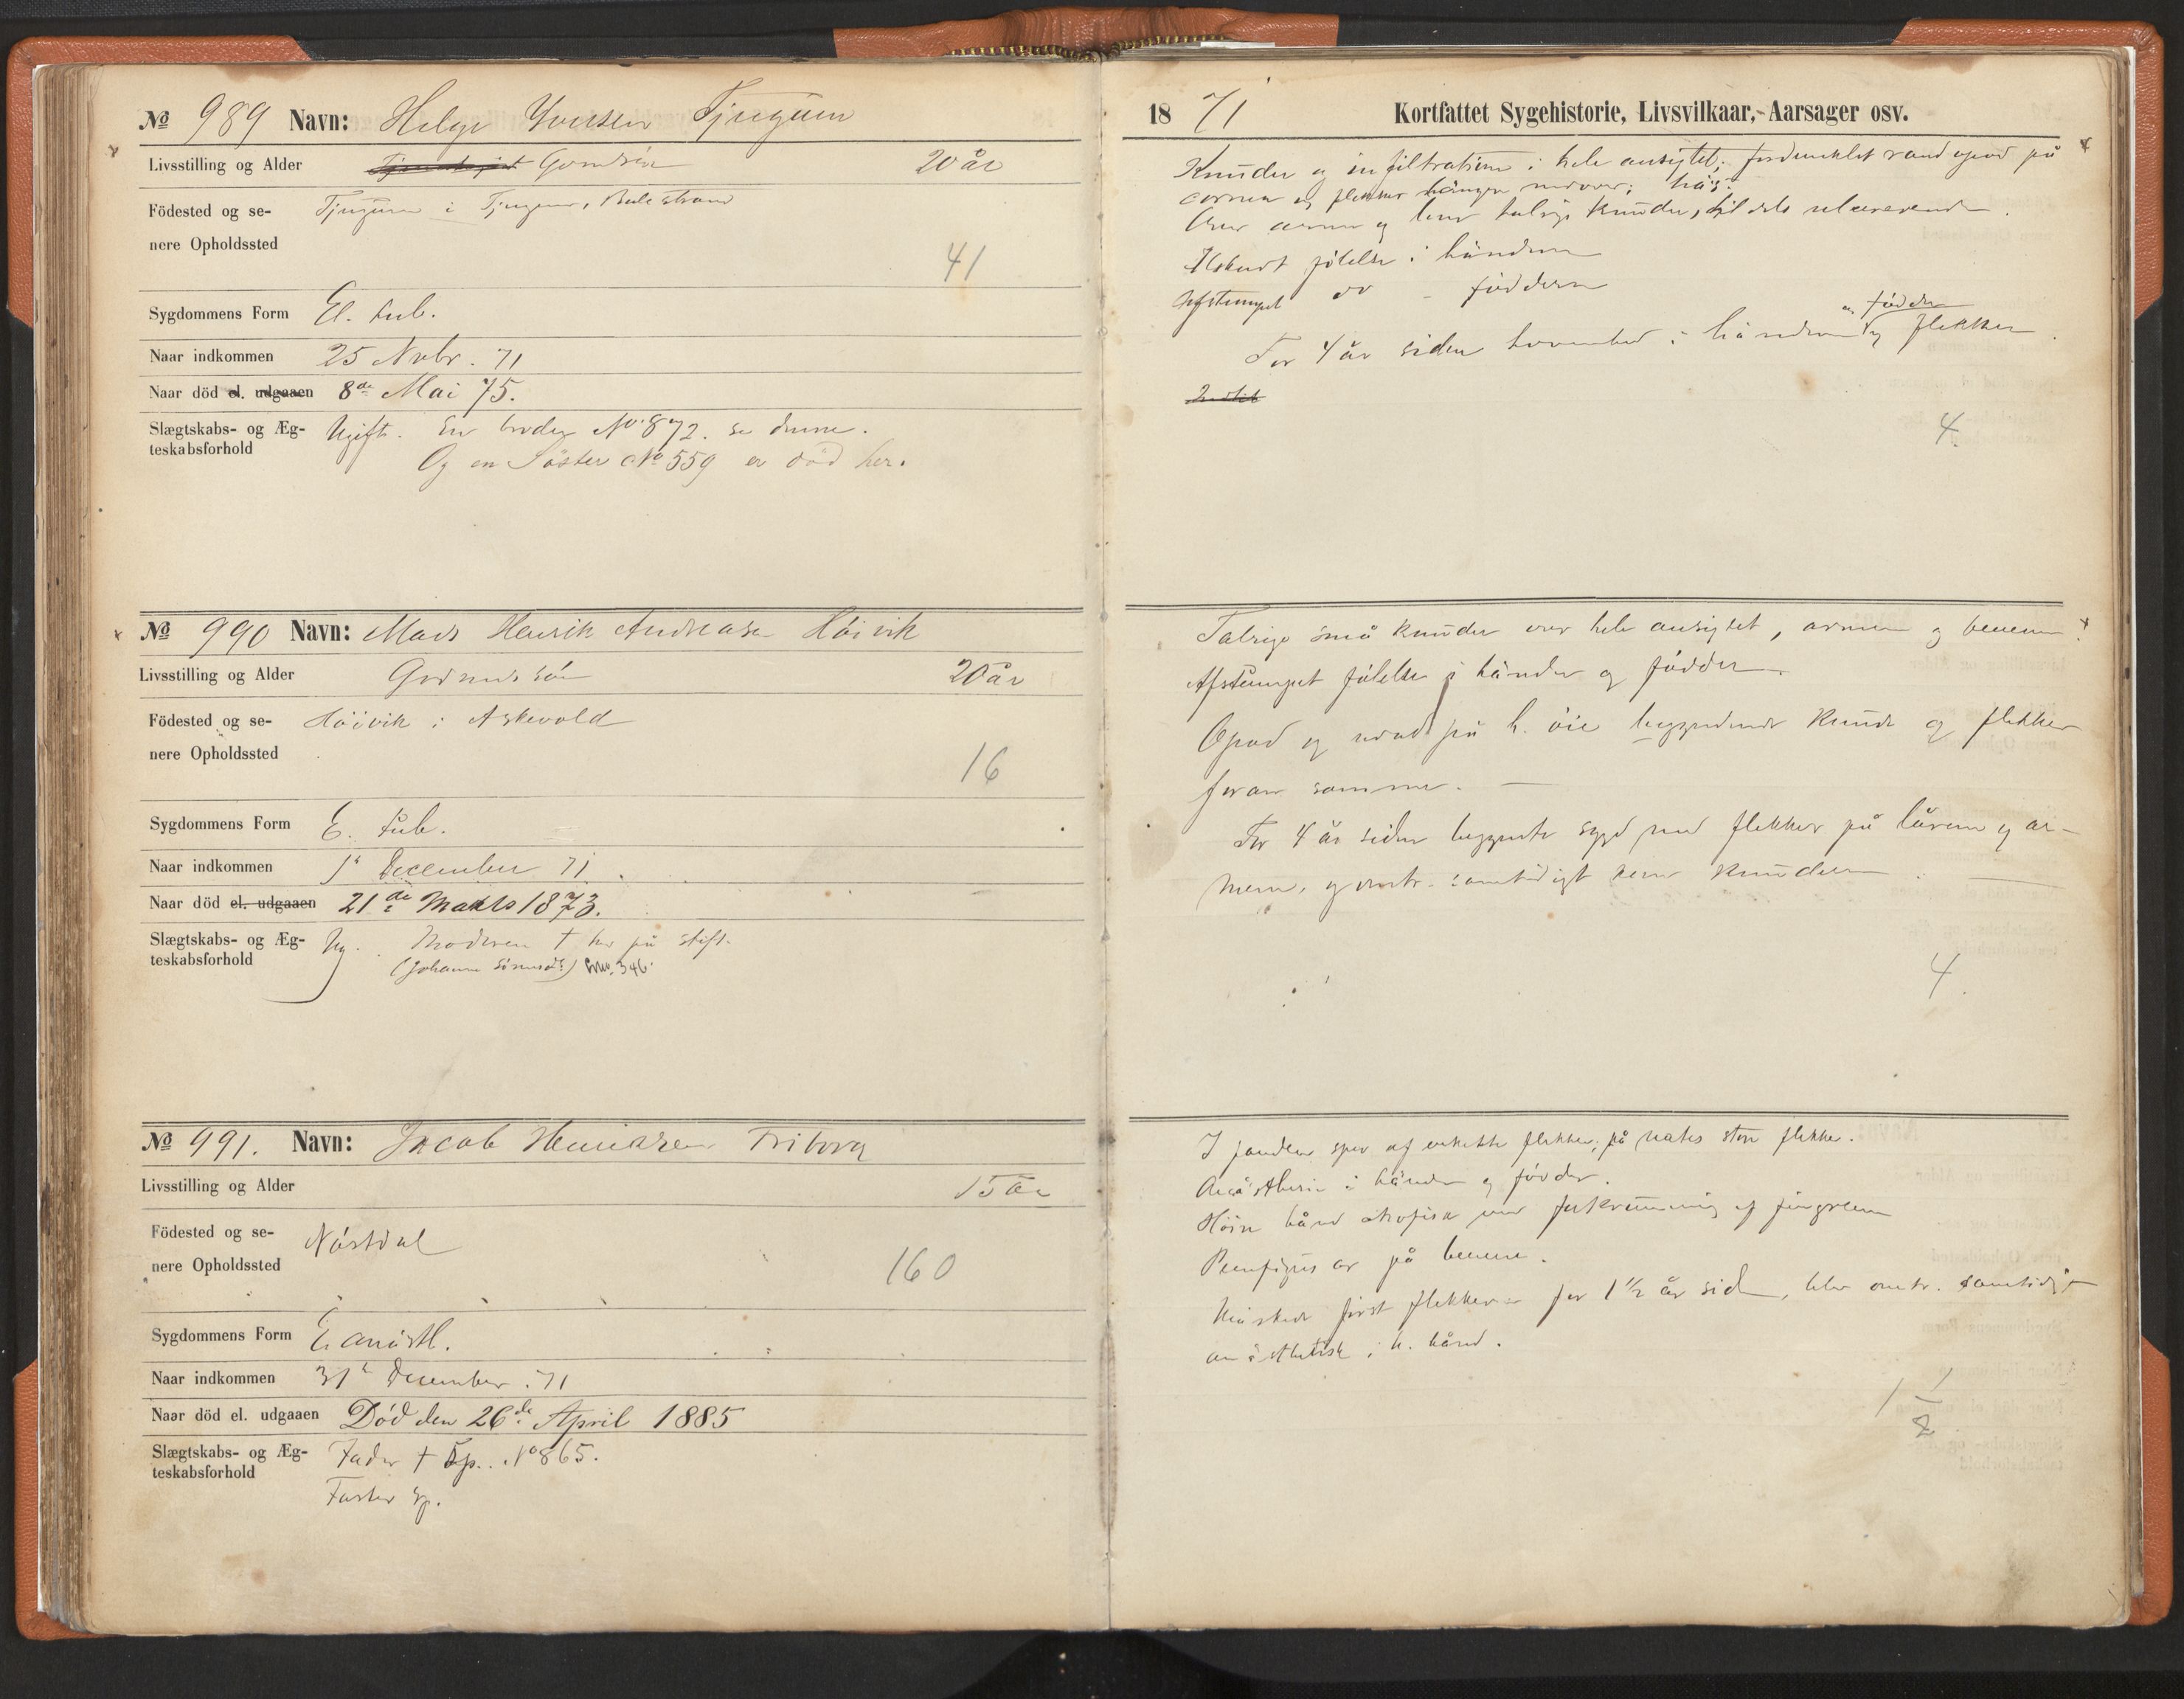 № 989 Navn: Helge Iversen Tjugum
Livsstilling og Alder Gomdsön 20 år
Födested og se- Tjugum i Tjugum, Balestrand
nere Opholdssted
41
Sygdommens Form El. tub.
Naar indkommen 25 Nvbr. 71
Naar död el. udgaaen 8de Mai 75.
Slægtskabs- og Æg- Ugift. En broder No. 872. se denne.
teskabsforhold Og en Söster No 559 er död her.
№ 990 Navn: Mads Henrik Andreasen Höivik
Livsstilling og Alder Gårdmdssön 20 år
Födested og se- Höivik i Askevold
nere Opholdssted
16
Sygdommens Form E. tub.
Naar indkommen 1ste December 71.
Naar död el. udgaaen 21de Marts 1873.
Slægtskabs- og Æg- Ug. Moderen † her på stift.
teskabsforhold (Johanne) No. 346.
№ 991. Navn: Jacob Henriksen Friborg
Livsstilling og Alder 15 år
Födested og se- Nöstdal
nere Opholdssted
160
Sygdommens Form E. anästh.
Naar indkommen 31te December .71
Naar död el. udgaaen Död den 26de April 1885
Slægtskabs- og Æg- Fader † Sp. No 865.
teskabsforhold
Faster Sp.
18 71 Kortfattet Sygehistorie, Livsvilkaar, Aarsager osv.
Knuder og infiltration i hele ansigtet; fordunklet rand opad på
cornea og flekker nedover; hås.
Over armer og ben talrige knuder, til dels ulcererende.
Usikker fölelse i händerne
Afstumpet do - föddern
For 4 år siden hovenhed i händerne og flekker
en födder
4.
Talrige små knuder over hele ansigtet, armene og benene.
Afstumpet fölelse i händer og födder.
Opad og udad på h. öie begyndende knude og flekker
foran samme. —
For 4 år siden begyndte sygd. med flekker på lårene og ar-
mene, og omtr. samtidigt kom knuderne. —
4.
I panden spor af enkelte flekker; på nates store flekker.
Anästhesie i händer og födder.
Höire hånd atrofisk med forkrumning af fingrene
Pemfigus ar på benene.
Mærkede först flekker for 1 1/2 år siden, blev omtr. samtidigt
anästhetisk i h. hånd.
1 1/2